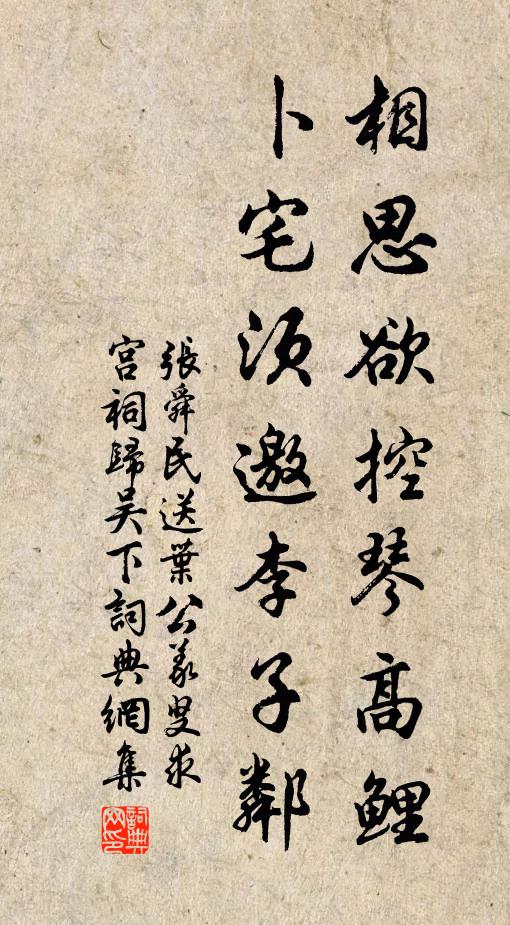 相思欲控琴高鯉
卜宅須邀李子鄰
張舜民送葉公羲叟求
宮祠歸吳下詞典網集
詞典網印